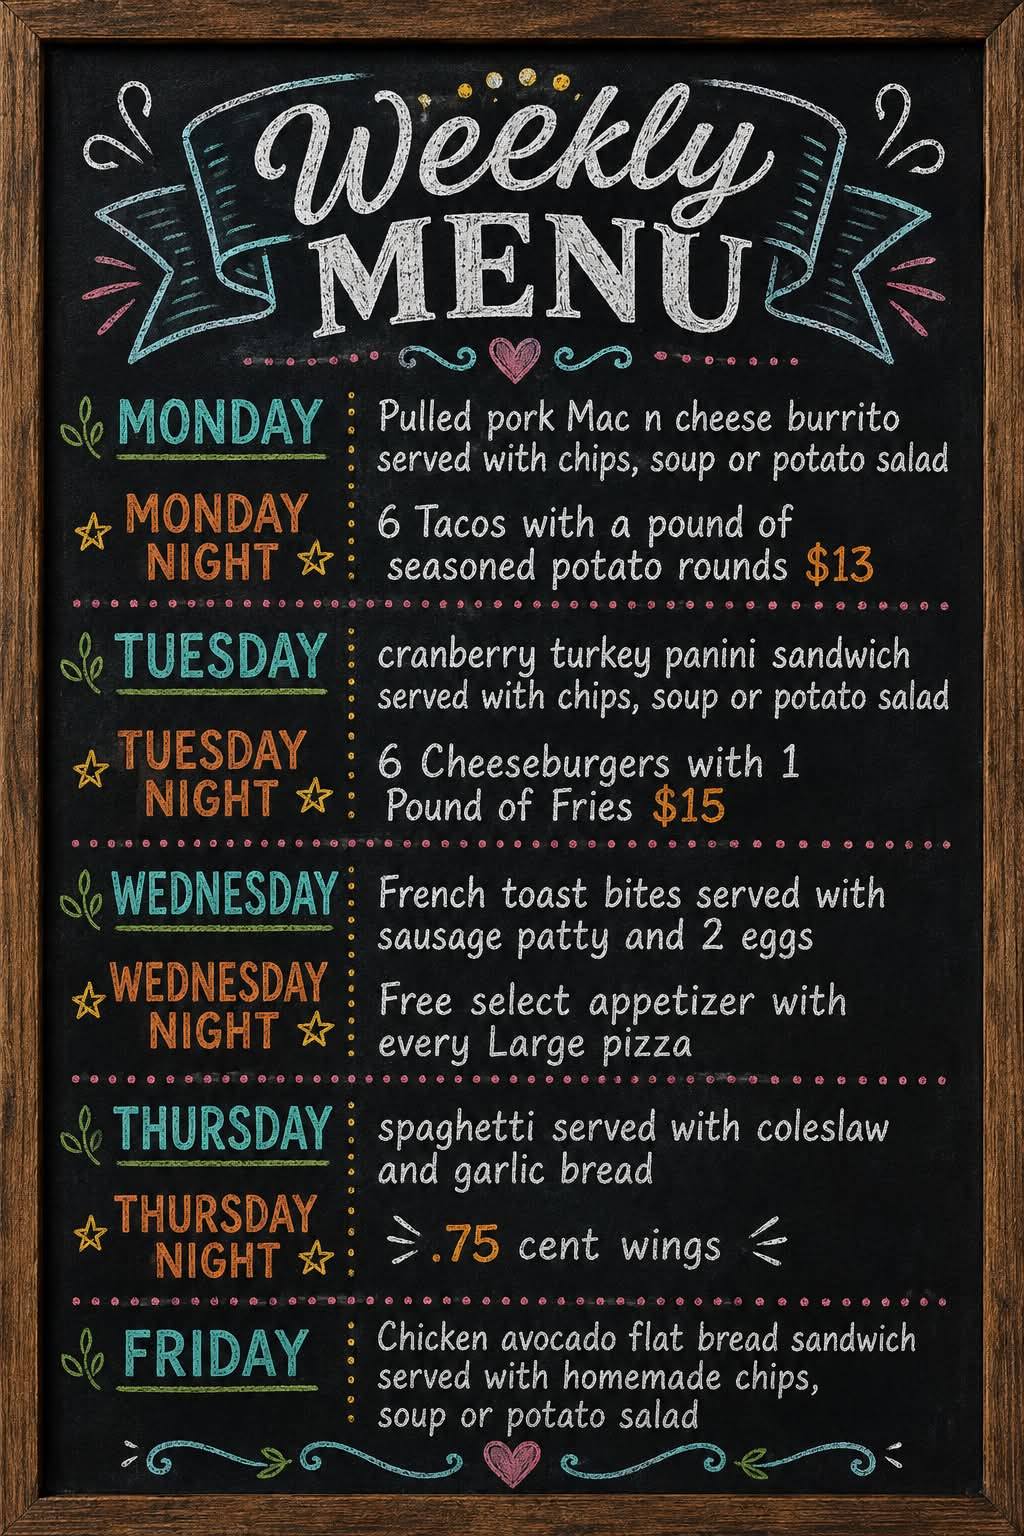 Weekly
MENU
MONDAY
Pulled pork Mac n cheese burrito
served with chips, soup or potato salad
MONDAY
NIGHT
6 Tacos with a pound of
seasoned potato rounds $13
TUESDAY
cranberry turkey panini sandwich
served with chips, soup or potato salad
TUESDAY
NIGHT
6 Cheeseburgers with 1
Pound of Fries $15
WEDNESDAY
French toast bites served with
sausage patty and 2 eggs
WEDNESDAY
NIGHT
Free select appetizer with
every Large pizza
THURSDAY
spaghetti served with coleslaw
and garlic bread
THURSDAY
NIGHT
.75 cent wings
FRIDAY
Chicken avocado flat bread sandwich
served with homemade chips,
soup or potato salad